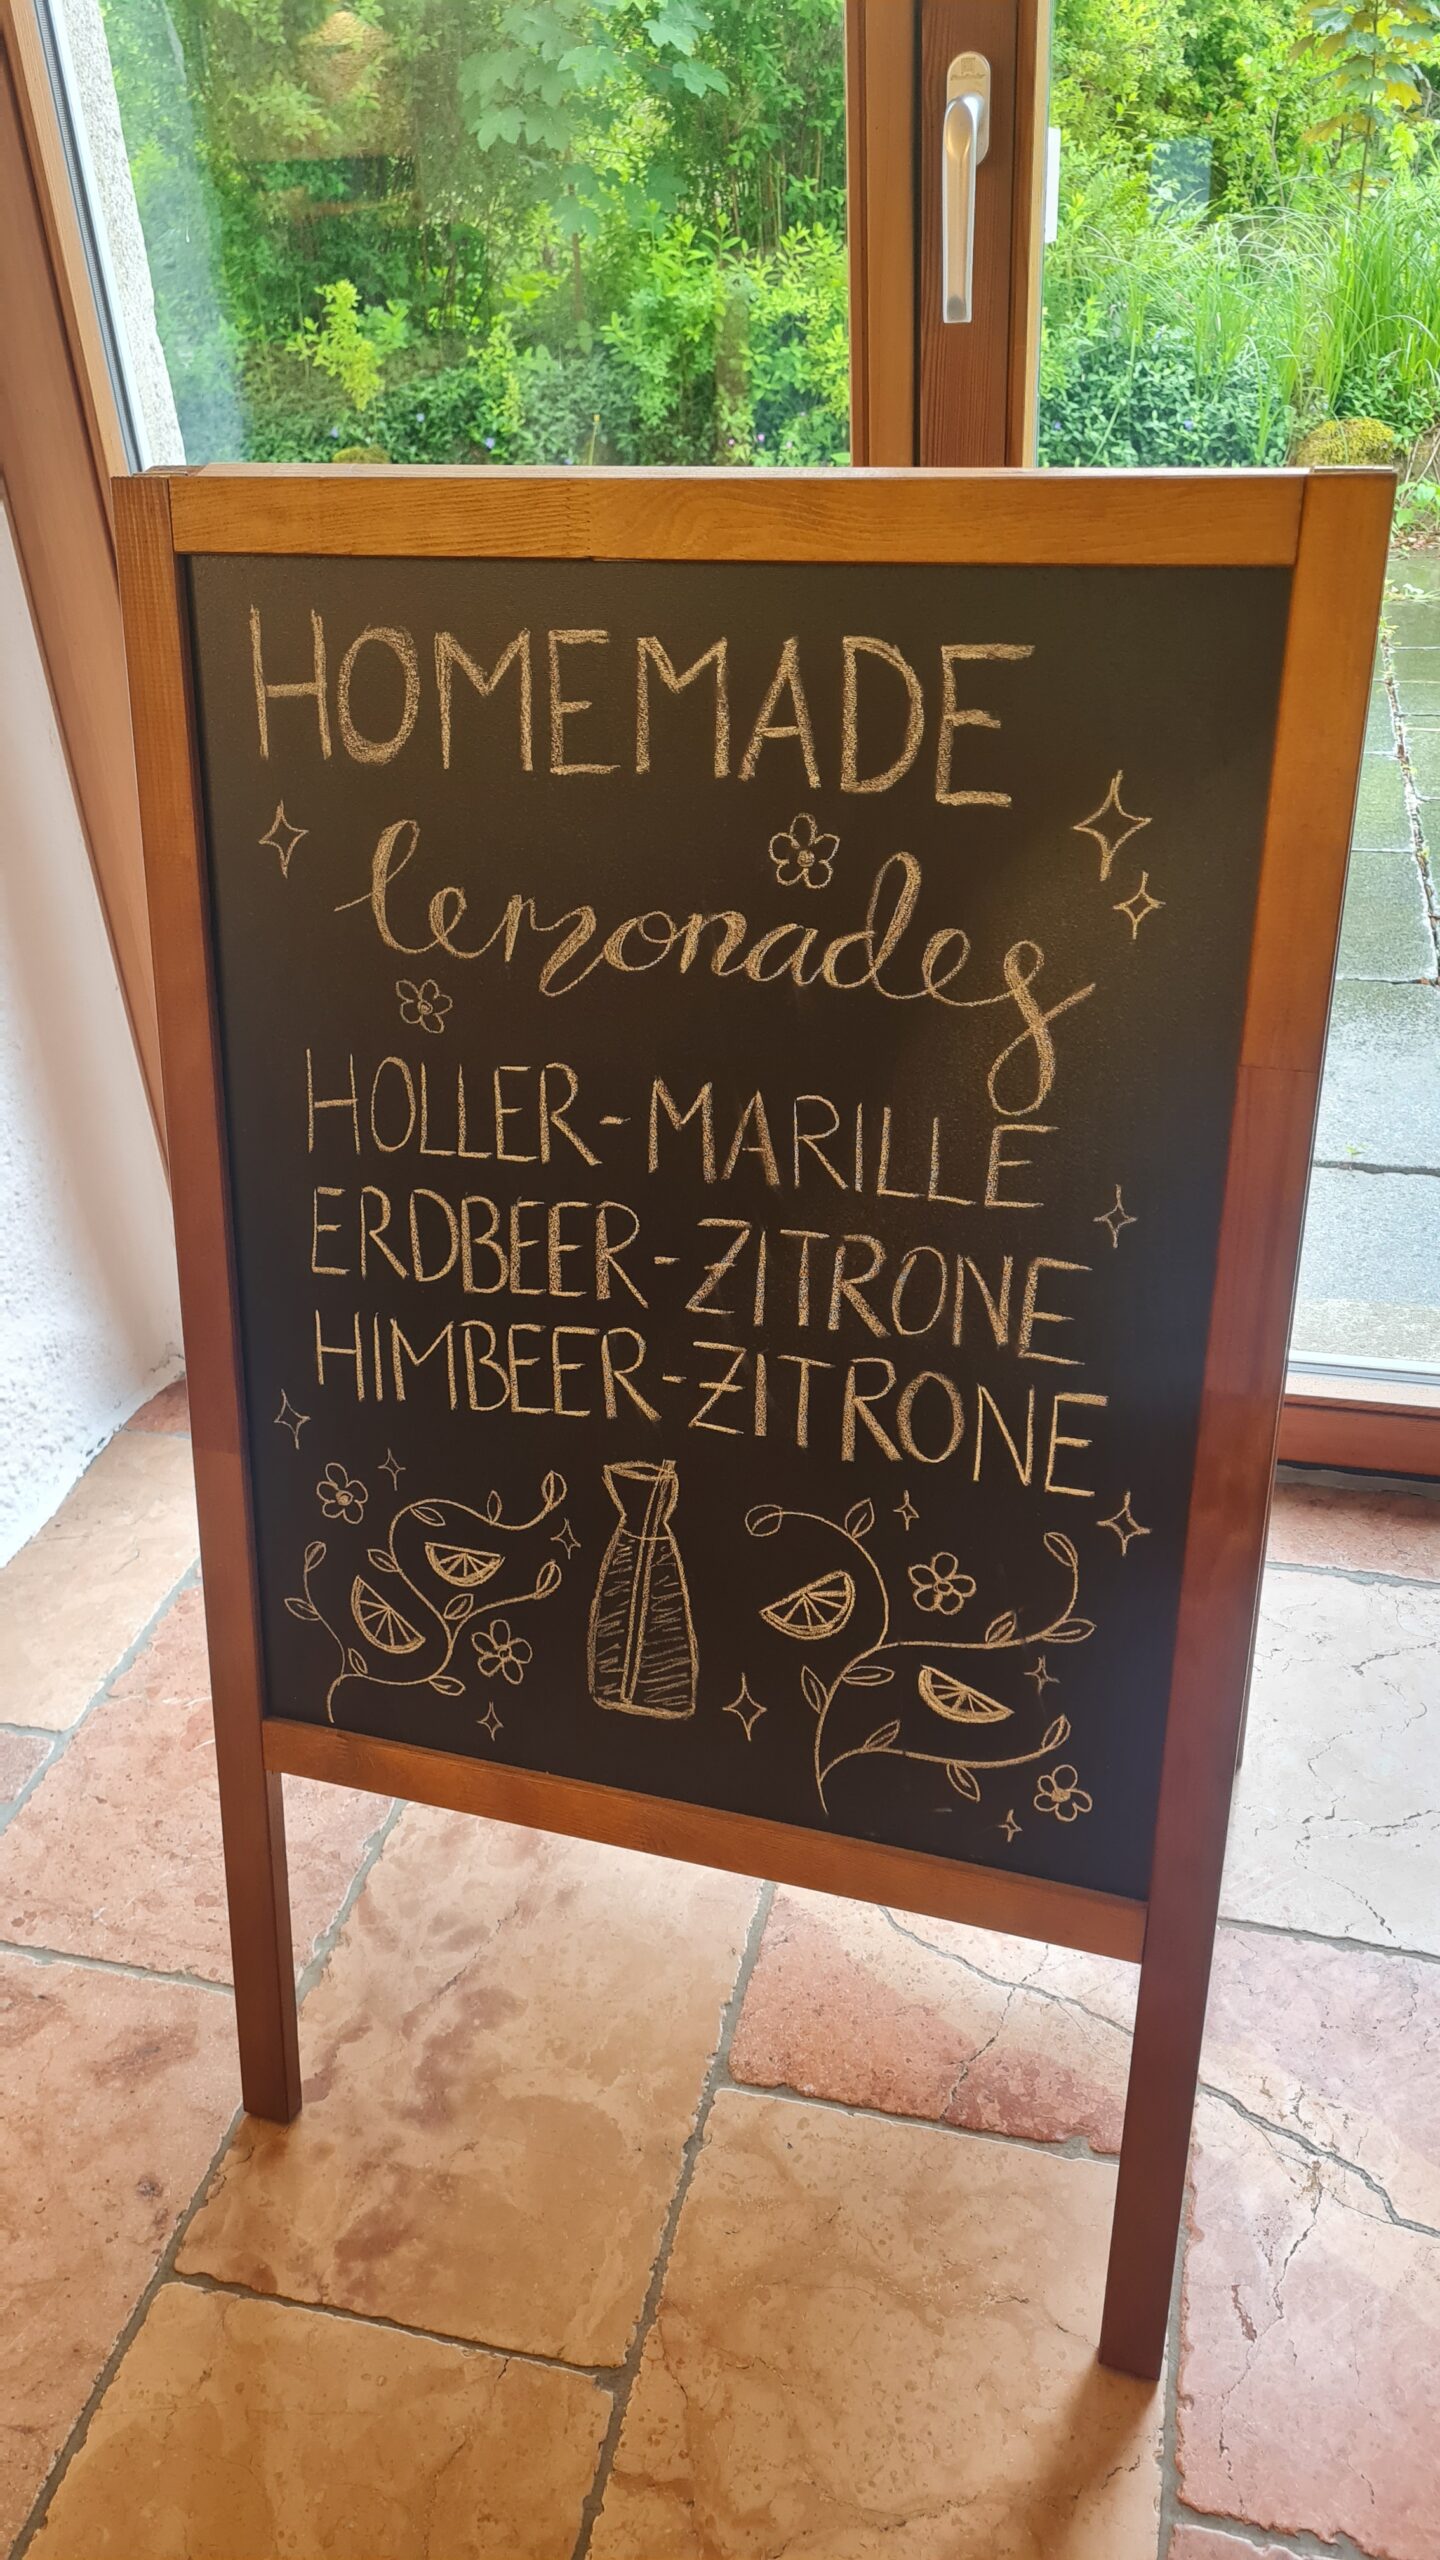 HOMEMADE
lemonades
HOLLER-MARILLE
ERDBEER-ZITRONE
HIMBEER-ZITRONE